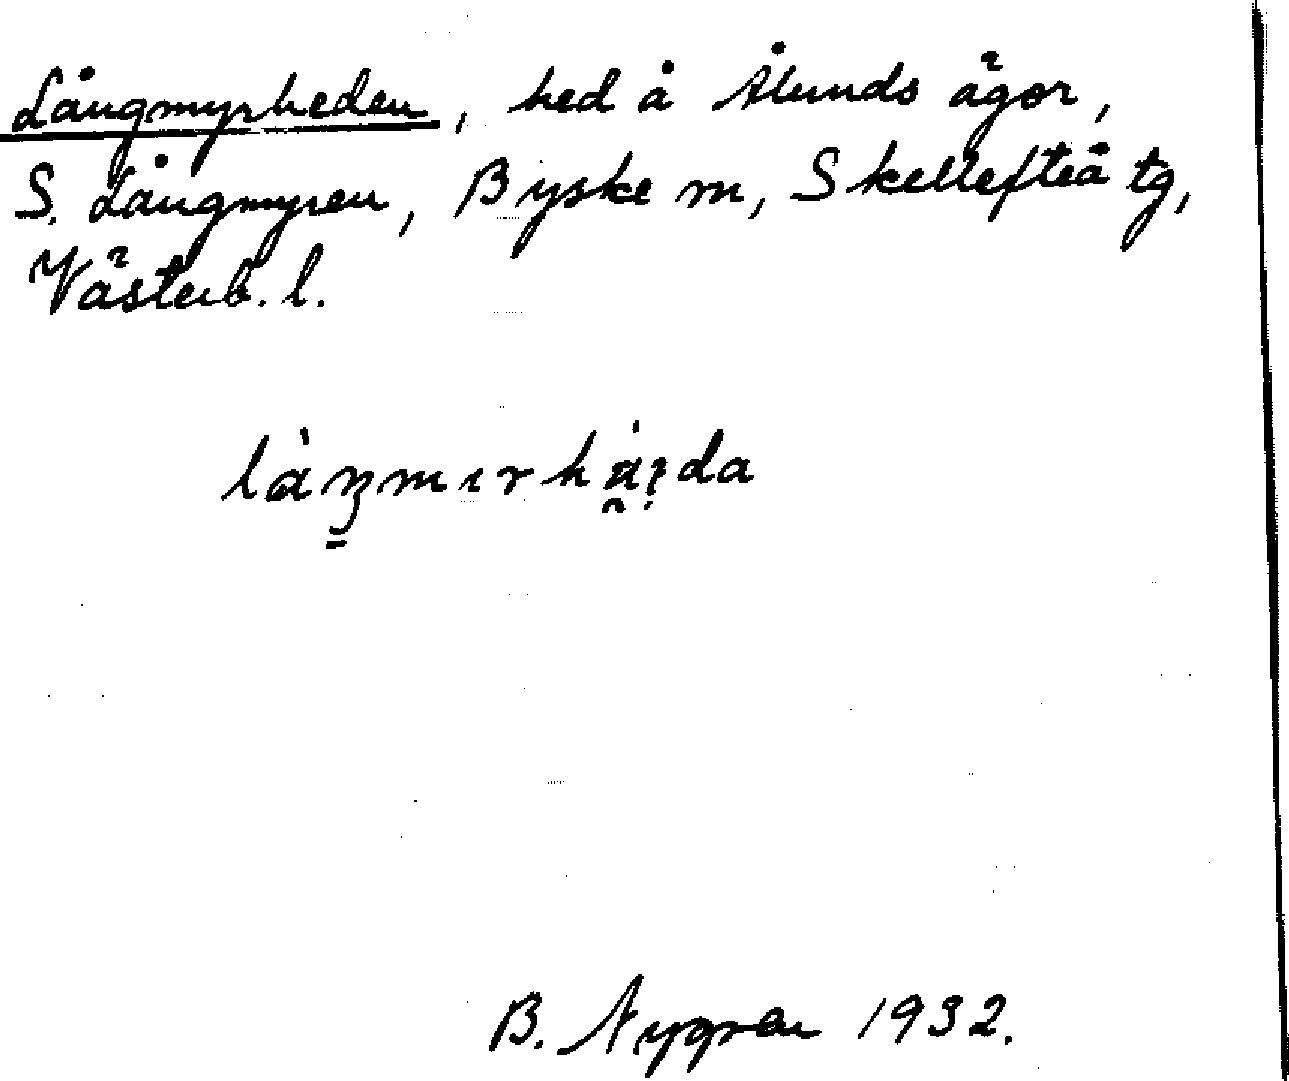 Långmyrheden, hed å Ålunds ägor,
S. Långmyren, Byske m, Skellefteå tg,
Västerb. l.
B. Nygren 1932.